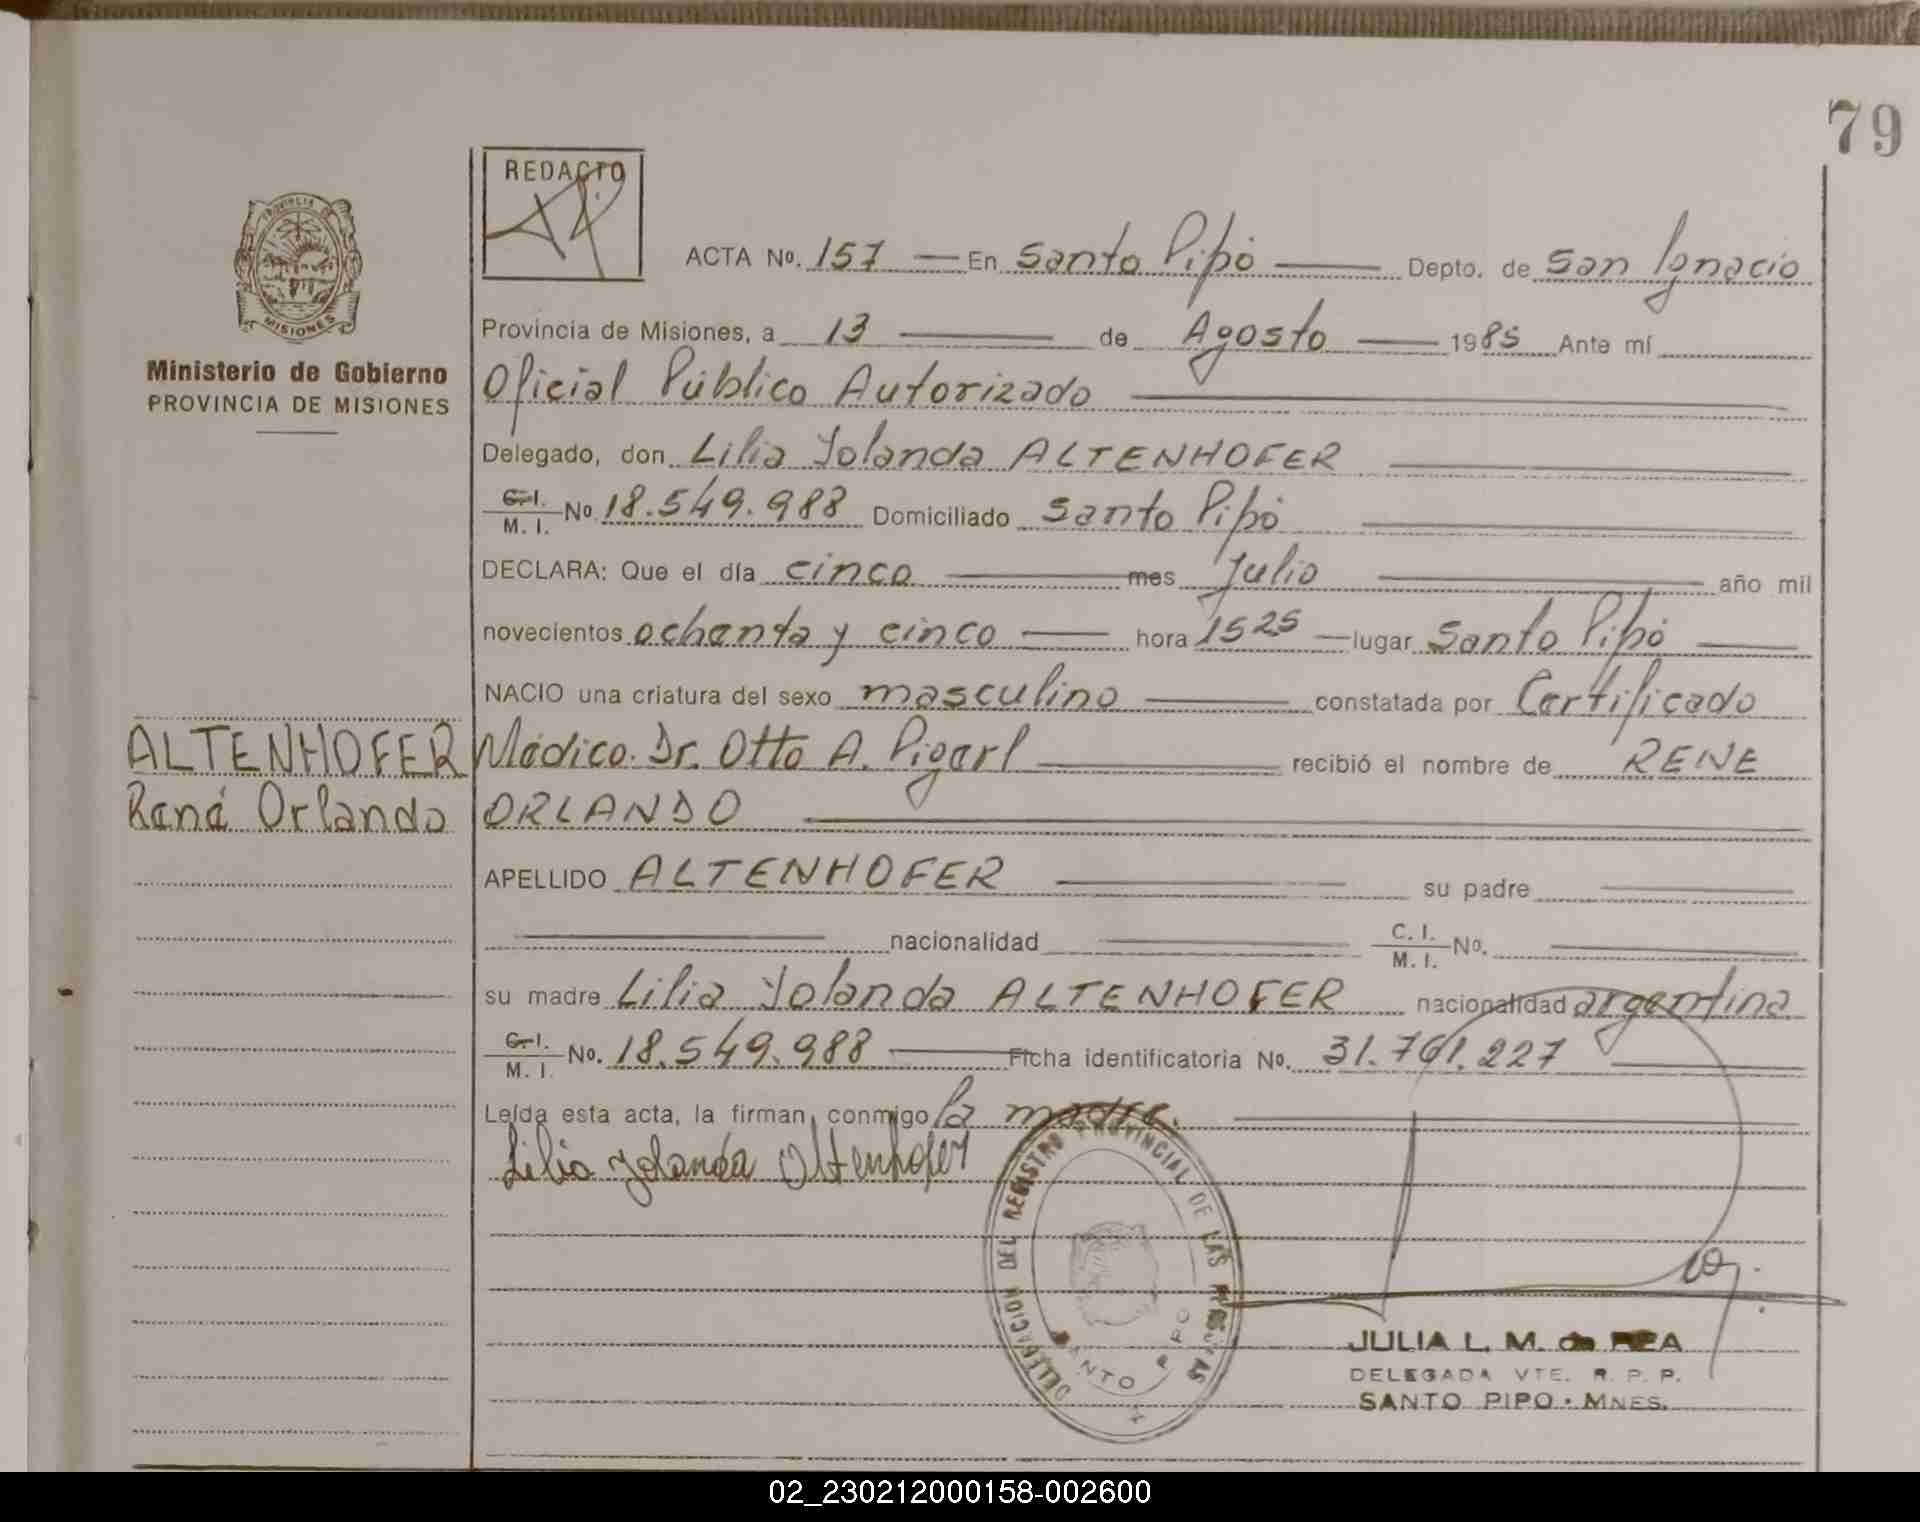 79
REDACTO
PROVINCIA DE
MISIONES
Ministerio de Gobierno
PROVINCIA DE MISIONES
ACTA Nº. 157 — En Santo Pipó — Depto. de San Ignacio
Provincia de Misiones, a 13 — de Agosto — 1985 Ante mí
Oficial Público Autorizado
Delegado, don Lilia Yolanda ALTENHOFER
C. I.
M. I. Nº 18.549.988 Domiciliado Santo Pipó
DECLARA: Que el día cinco — mes Julio — año mil
novecientos ochenta y cinco — hora 1525 — lugar Santo Pipó —
NACIO una criatura del sexo masculino — constatada por Certificado
Médico. Dr. Otto A. Pigerl — recibió el nombre de RENE
ORLANDO
ALTENHOFER
René Orlando
APELLIDO ALTENHOFER — su padre —
— nacionalidad — C. I.
M. I. Nº. —
su madre Lilia Yolanda ALTENHOFER nacionalidad argentina
C. I.
M. I. Nº. 18.549.988 — Ficha identificatoria Nº. 31.761.227 —
Leída esta acta, la firman, conmigo la madre.
Lilia Yolanda Altenhofer
DELEGACION DEL REGISTRO PROVINCIAL DE LAS PERSONAS
SANTO PIPO
JULIA L. M. de REA
DELEGADA VTE. R. P. P.
SANTO PIPO - MNES.
02_230212000158-002600